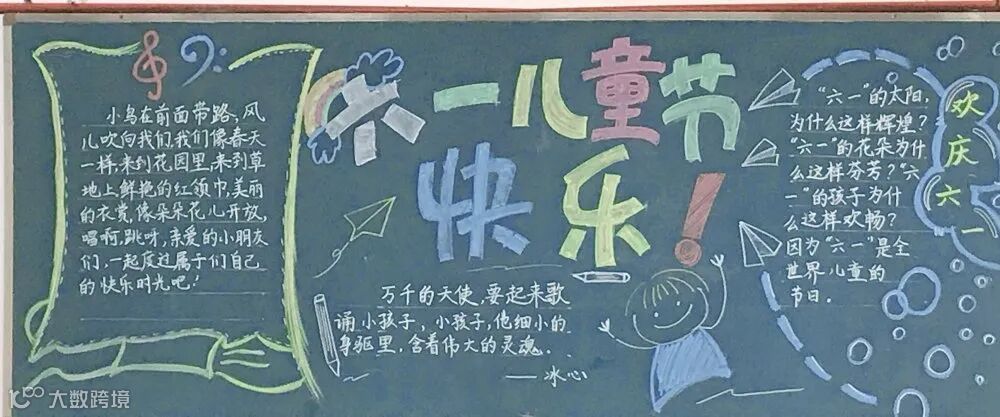 小鸟在前面带路,风
儿吹向我们,我们像春天
一样,来到花园里,来到草
地上鲜艳的红领巾,美丽
的衣赏,像朵朵花儿开放,
唱啊,跳呀,亲爱的小朋友
们,一起度过属于们自己
的快乐时光吧!
六一儿童节
快乐!
万千的天使,要起来歌
诵小孩子,小孩子,他细小的
身驱里,含着伟大的灵魂..
——冰心
“六一”的太阳,
为什么这样辉煌?
“六一”的花朵为什
么这样芬芳?“六
一”的孩子为什
么这样欢畅?
因为“六一”是全
世界儿童的
节日.
欢
庆
六
一
大数跨境